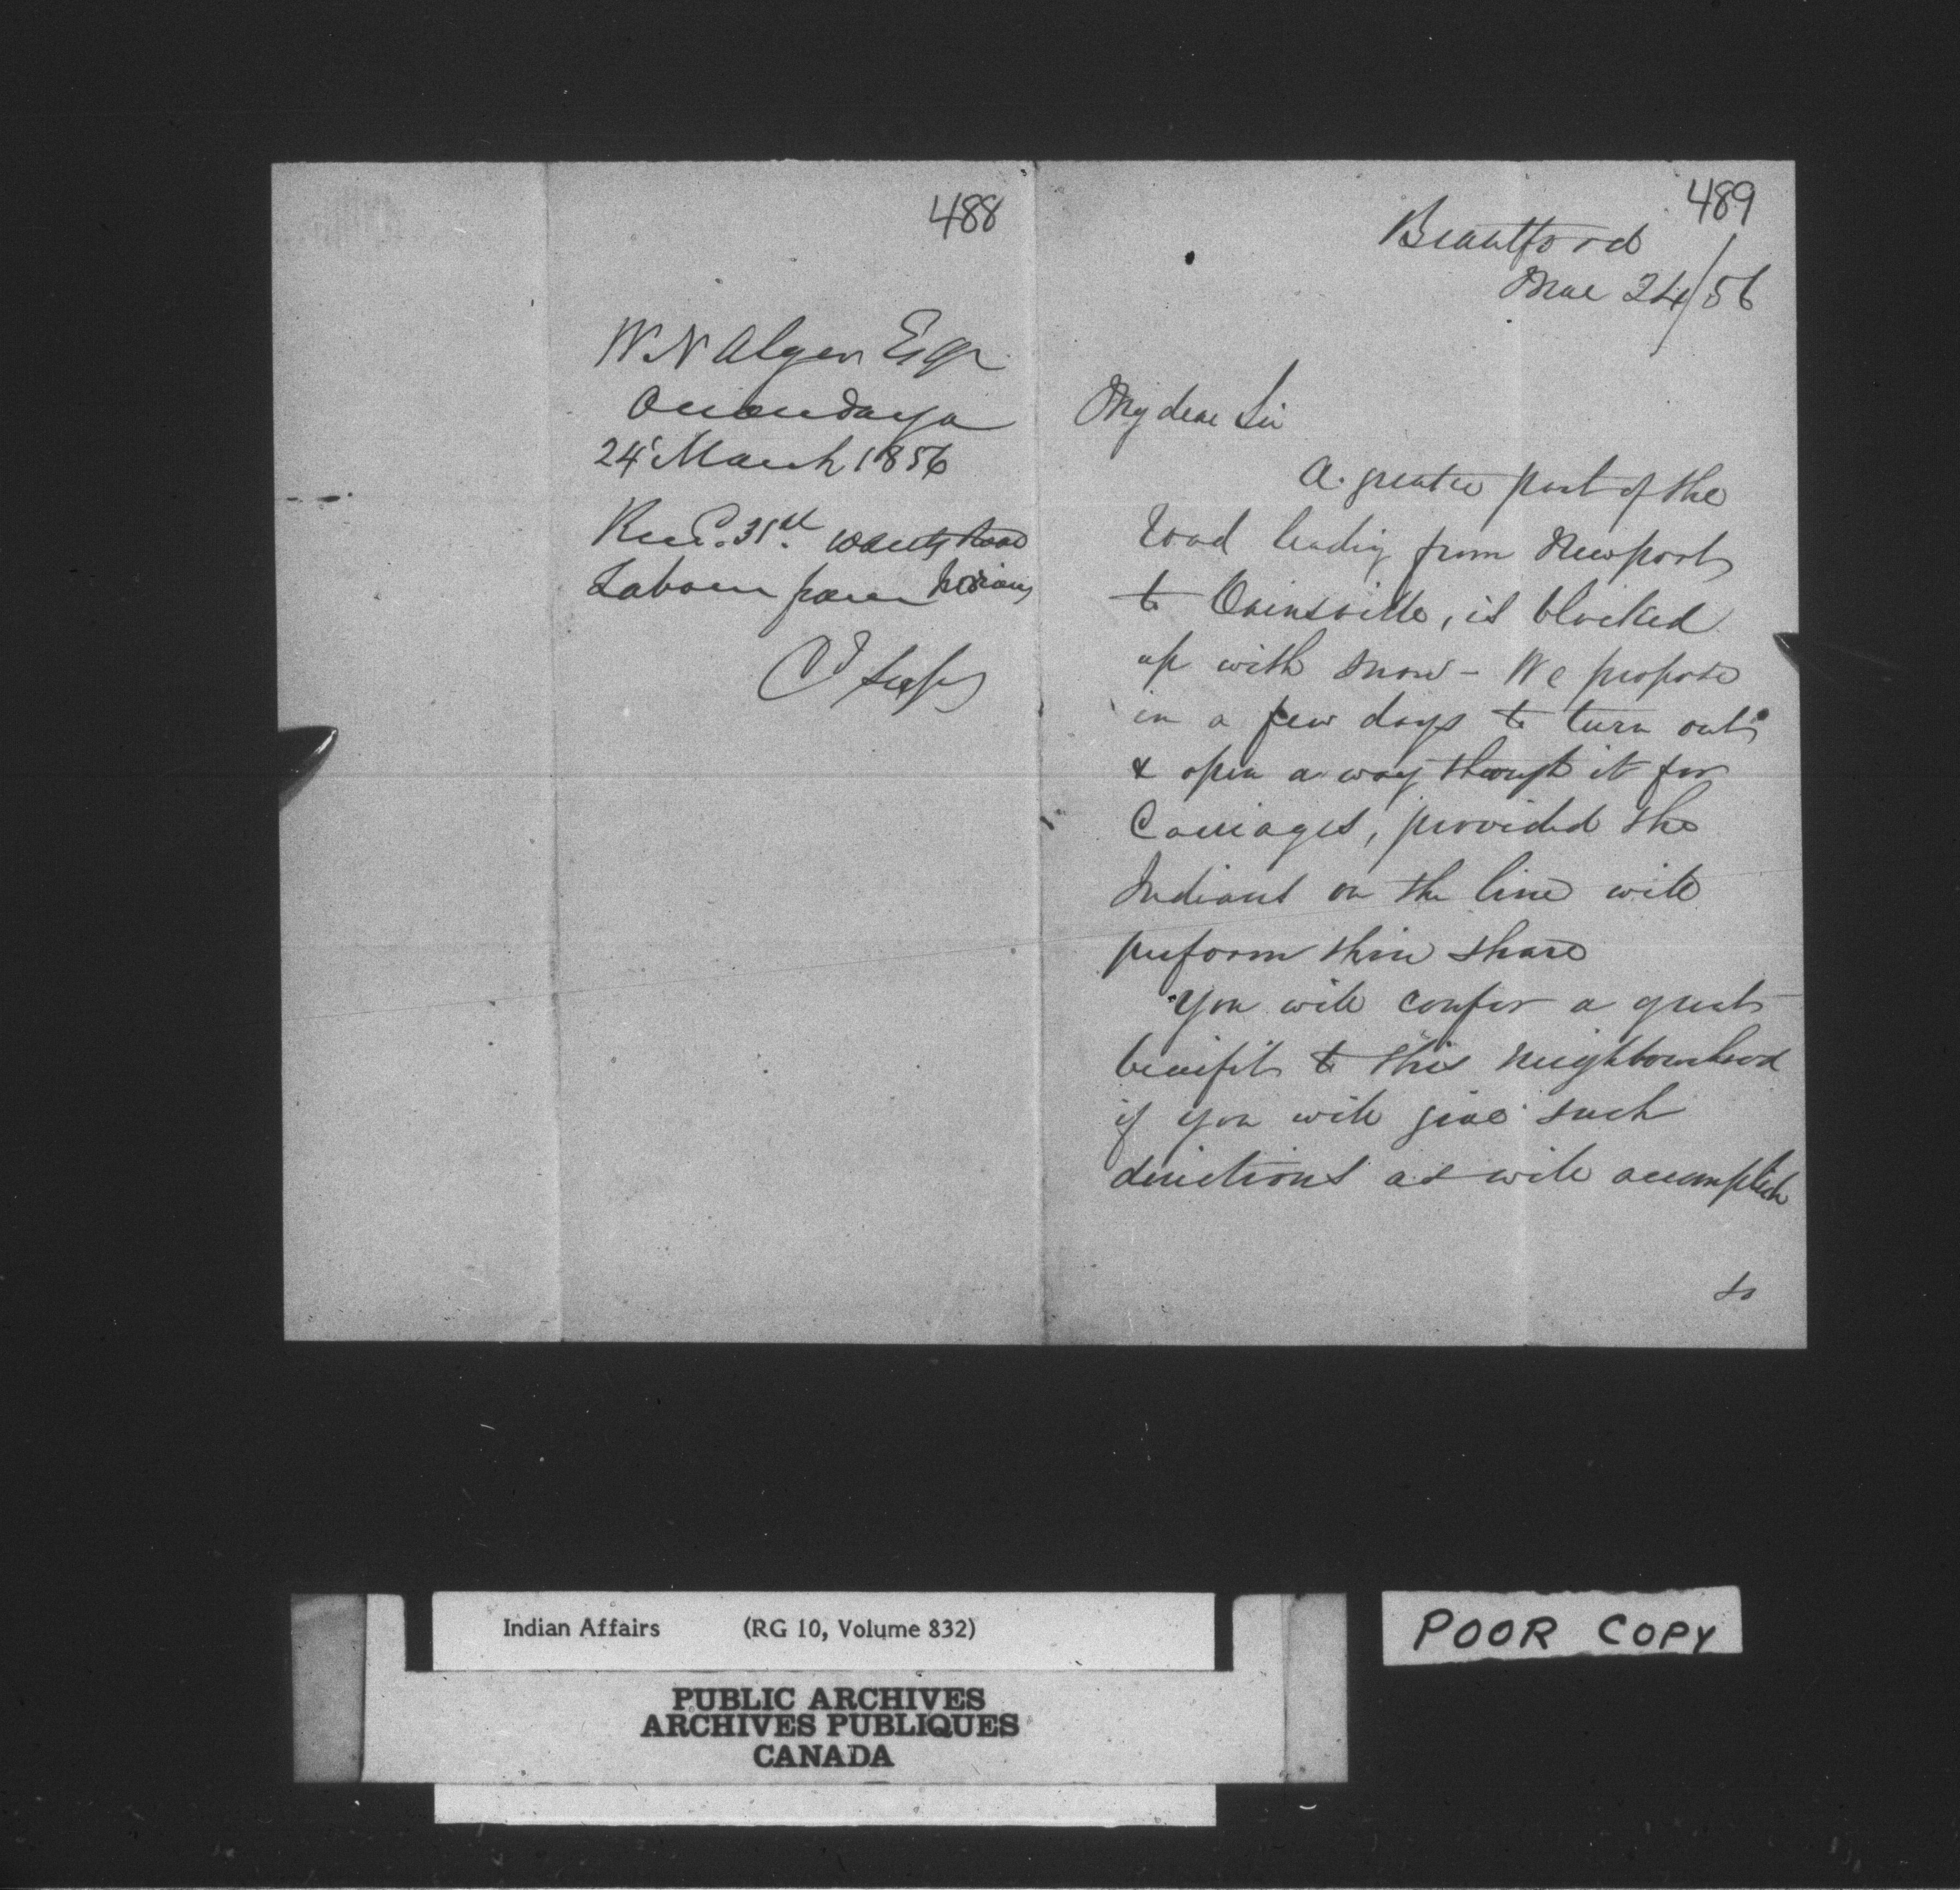 488
W. N Alger Esqr
Onondaga
24' March 1856
Rec'd. 31st. wants Road
Labour from Indians
489
Brantford
Mar 24/56
My dear Sir
A greater part of the
road leading from Newport
to Cainsville, is blocked
up with snow - We propose
in a few days to turn out
& open a way through it for
Carriages, provided the
Indians on the line will
perform their share
You will confer a great
benifit to this neighbourhood
if you will give such
directions as will accomplish
so
Indian Affairs (RG 10, Volume 832)
PUBLIC ARCHIVES
ARCHIVES PUBLIQUES
CANADA
POOR COPY